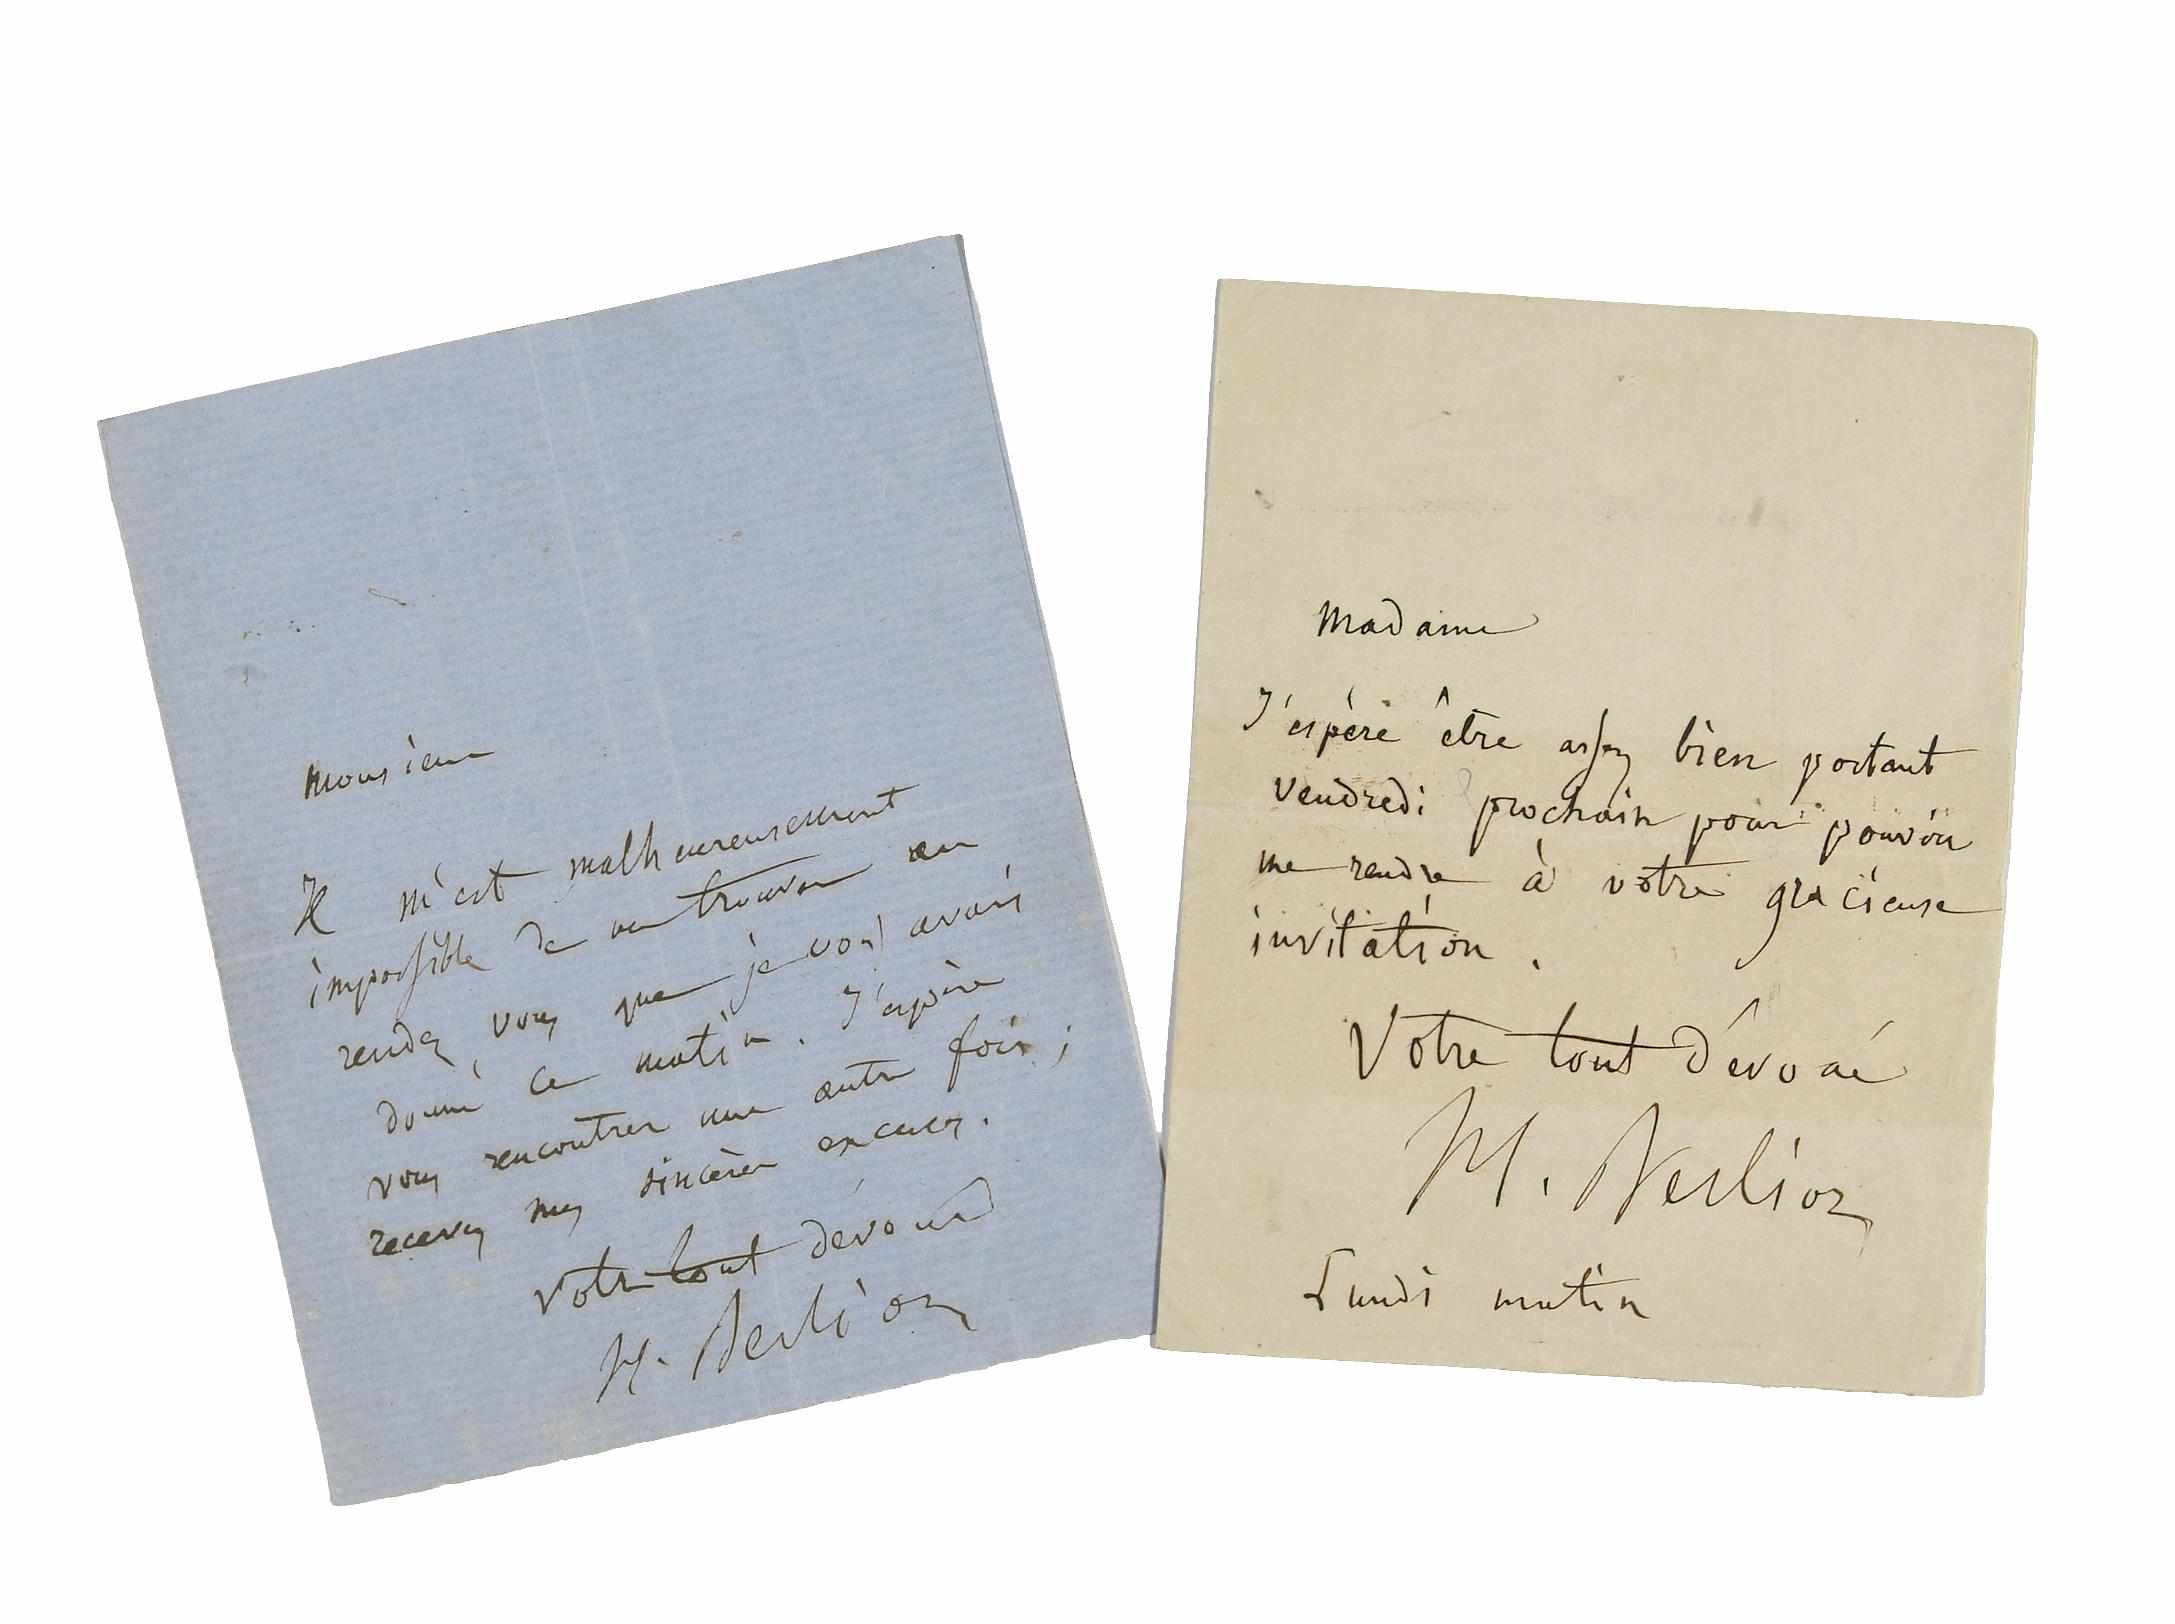 Monsieur
Il m'est malheureusement
impossible de me trouver au
rendez vous que je vous avais
donné ce matin. J'espère
vous rencontrer une autre fois ;
recevez mes sincères excuses.
Votre tout dévoué
H. Berlioz
Madame
J'espère être assez bien portant
vendredi prochain pour pouvoir
me rendre à votre gracieuse
invitation.
Votre tout dévoué
H. Berlioz
Lundi matin